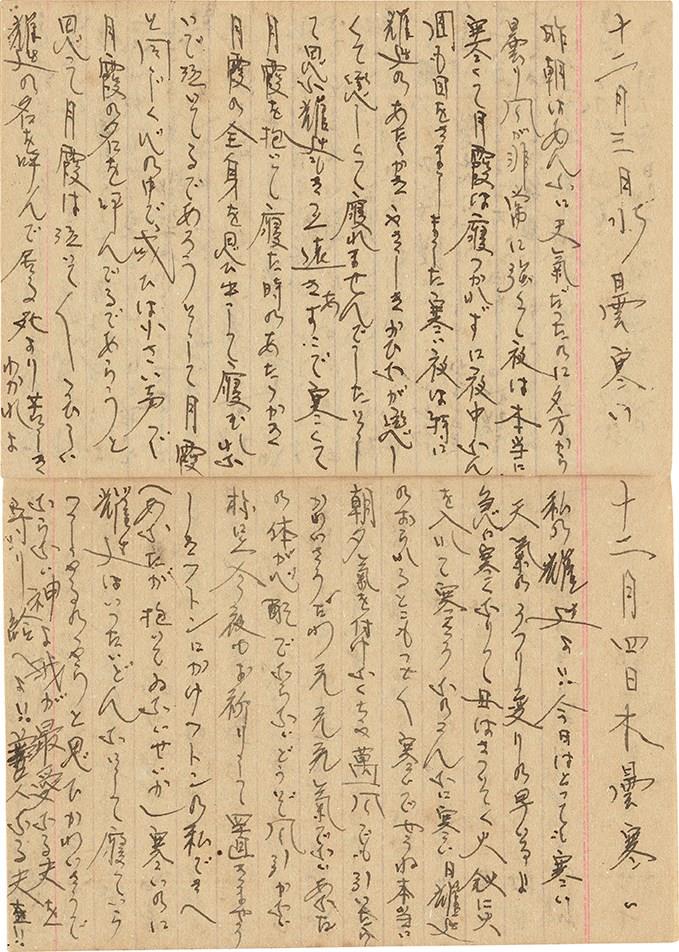 十二月三日水曇寒い
昨朝はあんなに天氣だったのに夕方から
曇り風が非常に強くて夜は本当に
寒くて月霞は寝つかれずに夜中なん
週も目をさましました寒い夜は特に
雄辿のあたゝかさやさしきかひなが恋し
くて悲しくて寝れませんでした
て思ふ雄辿もきっと遠きあすこで寒くて
月霞を抱いて寝た時のあたゝかさ
月霞の全身を思ひ出して寝むれ
いで泣いてるであろうそして月霞
と同じく心の中で或ひは小さい声で
月霞の名を呼んでるであらうと
思って月霞は泣いて
雄辿の名を呼んで居る死より苦しき
わかれよ
十二月四日木曇寒い
私の雄辿よ!!今日はとっても寒い
天氣のうつり変りの早い事よ
急に寒くなりて母はさっそく火鉢に火
を入れて寒そうこんなに寒い日雄辿
のおられるとこもつごく寒いでせうね本当に
朝夕氣を付けなくちゃ萬一風でも引いたら
かわいそうだわ元元元氣でないあなた
の体が心配でならないどうぞ風引かない
様に今夜もお祈りして
しきフトンにかけフトンの私でさへ
(あなたが抱いてゐないせいか)寒いのに
雄辿はいったいどんなにして寝ていら
っしゃるのやらと思ひかわいそうで
ならない神よ我が最愛なる夫を
守り給へよ!!善人なる夫を!!